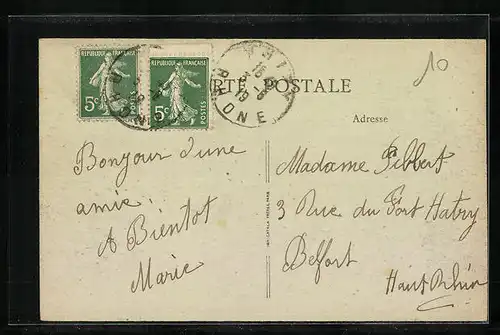 10
REPUBLIQUE FRANÇAISE
5c POSTES
REPUBLIQUE FRANÇAISE
5c POSTES
RHONE
CARTE POSTALE
Adresse
Bonjour d'une
amie.
A Bientot
Marie
Madame Pebbert
3 Rue du Fort Hatry
Belfort
Haut Rhin